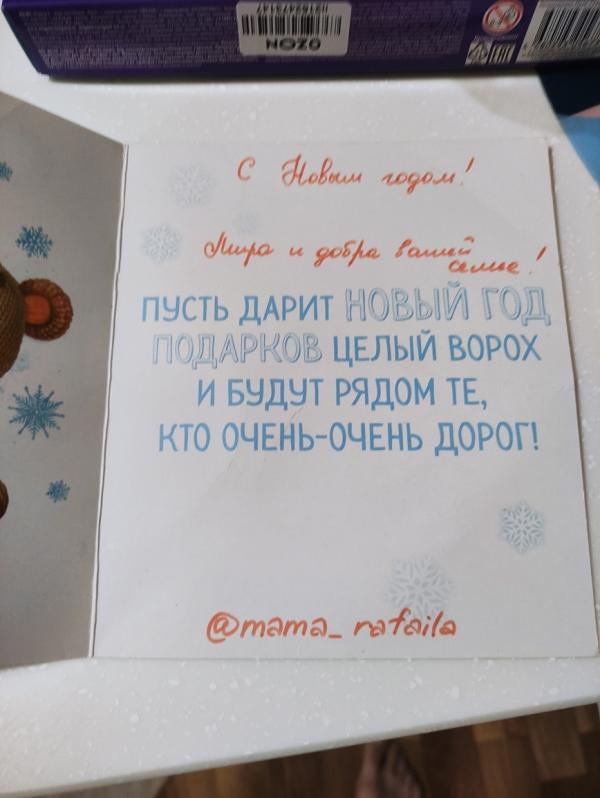 OZON
С Новым годом!
Мира и добра вашей
семье!
ПУСТЬ ДАРИТ НОВЫЙ ГОД
ПОДАРКОВ ЦЕЛЫЙ ВОРОХ
И БУДУТ РЯДОМ ТЕ,
КТО ОЧЕНЬ-ОЧЕНЬ ДОРОГ!
@mama_rafaila